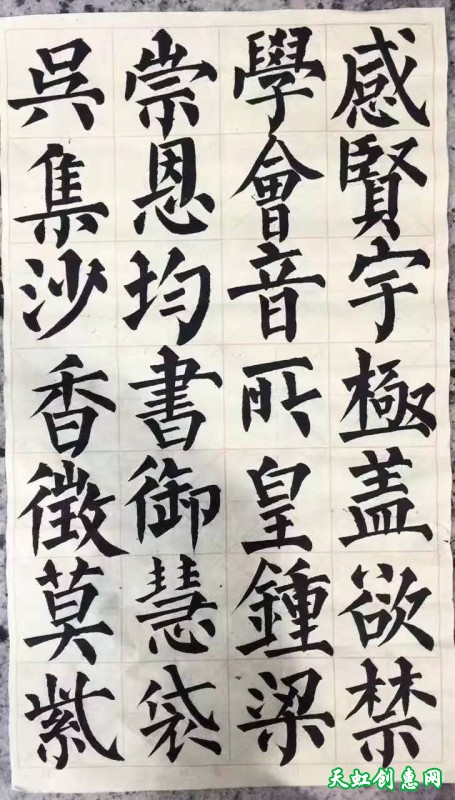 感賢宇極盖欲禁
學會音所皇鍾梁
崇恩均書御慧袋
吳集沙香徵莫紫
天虹创惠网